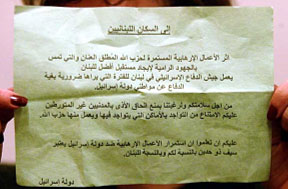 إلى السكان اللبنانيين
اثر الأعمال الإرهابية المستمرة لحزب الله المطلق العنان والتي تمس
بالجهود الرامية لايجاد مستقبل أفضل للبنان
يعمل جيش الدفاع الإسرائيلي في لبنان للفترة التي يراها ضرورية بغية
الدفاع عن مواطني دولة إسرائيل.
من اجل سلامتكم ورغبتنا بمنع الحاق الأذى بالمدنيين غير المتورطين
عليكم الإمتناع من التواجد بالأماكن التي يتواجد فيها ويعمل منها حزب الله.
عليكم ان تعلموا إن استمرار الأعمال الإرهابية ضد دولة إسرائيل يعتبر
سيف ذو حدين بالنسبة لكم وبالنسبة للبنان.
دولة إسرائيل